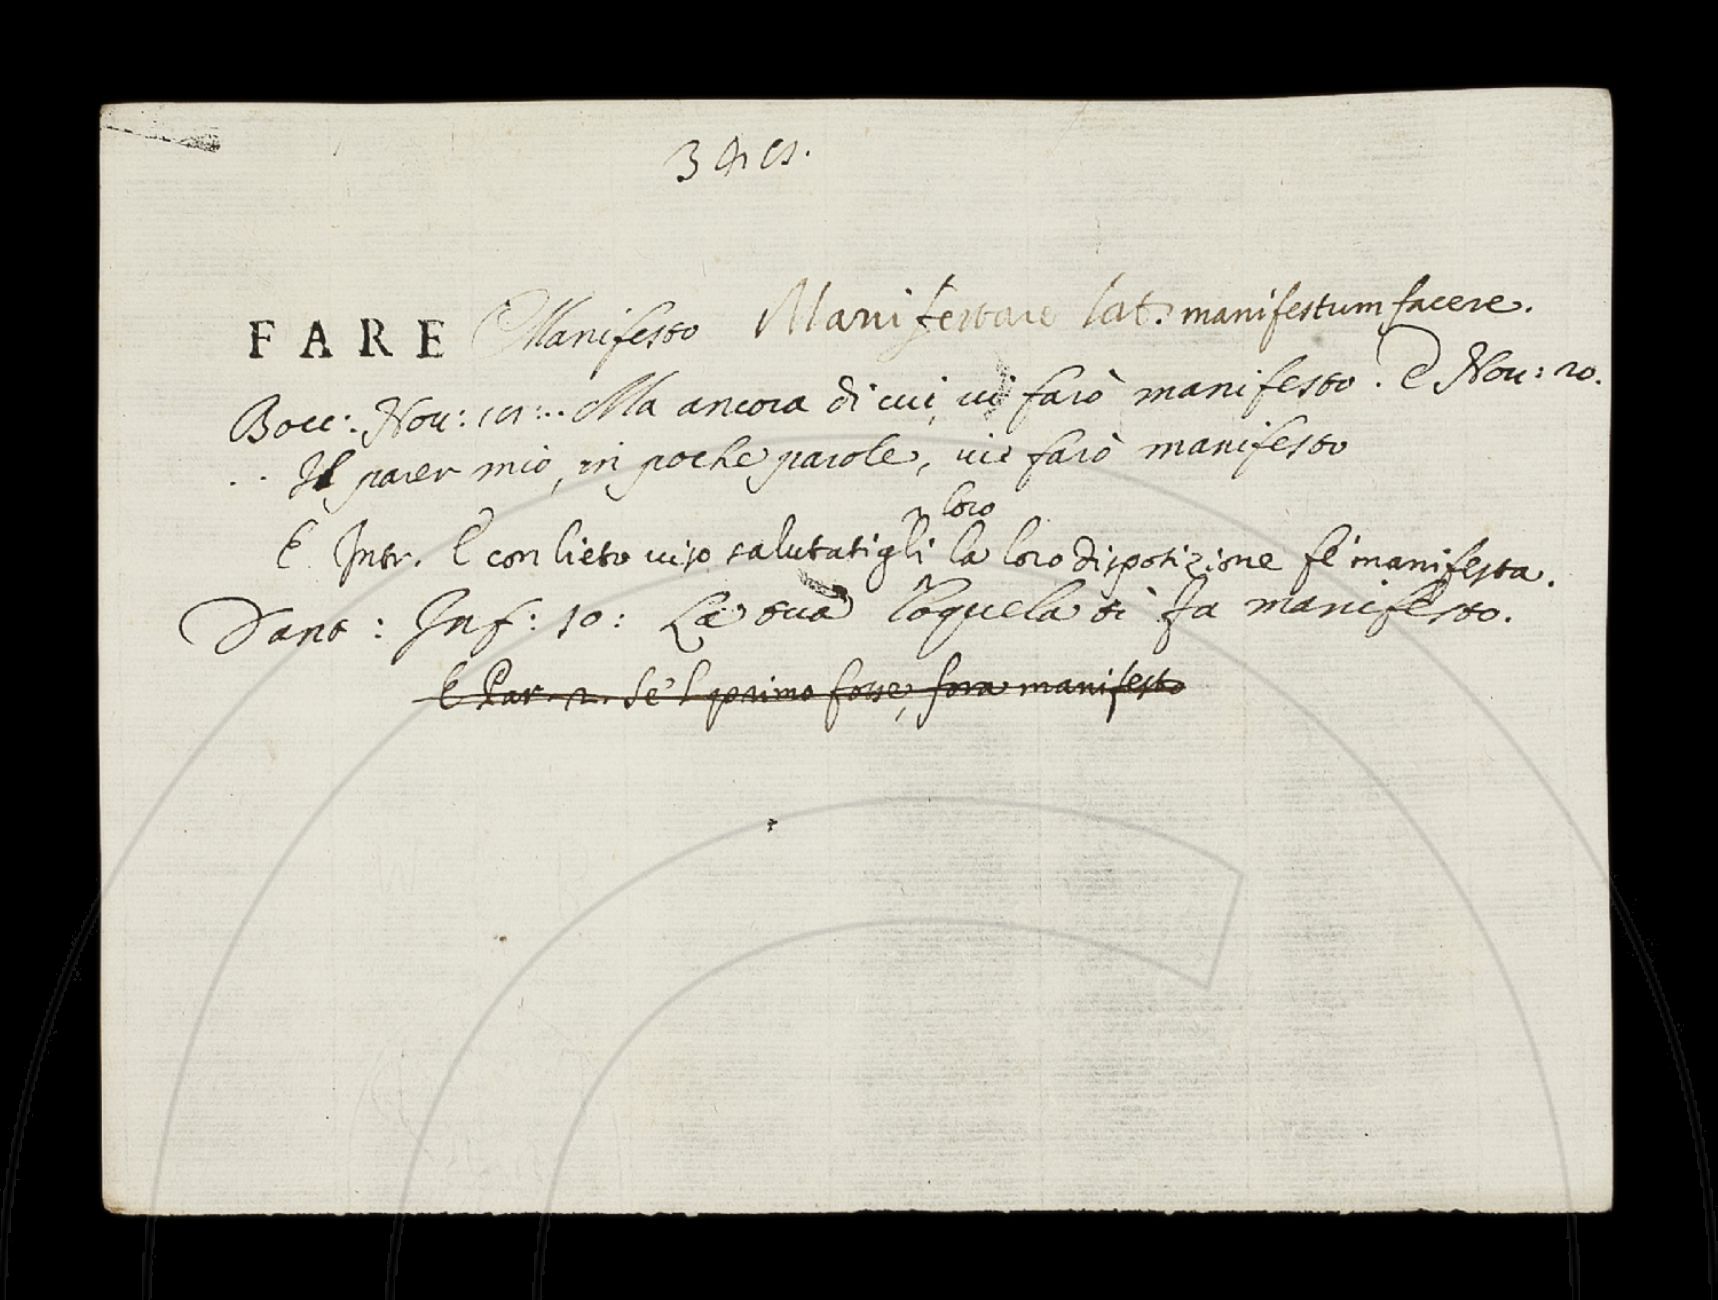 FARE Manifesto Manifestare lat. manifestum facere.
Bocc: Nou: ... Ma ancora di cui, ui farò manifesto. E Nou: 20.
.. Il parer mio, in poche parole, ui farò manifesto
loro
E Intr. E con lieto uiso salutatigli la loro disposizione fe manifesta.
Dant: Inf: 10: La tua loquela ti fa manifesto.
E Par. 2. Se 'l primo fosse, fora manifesto